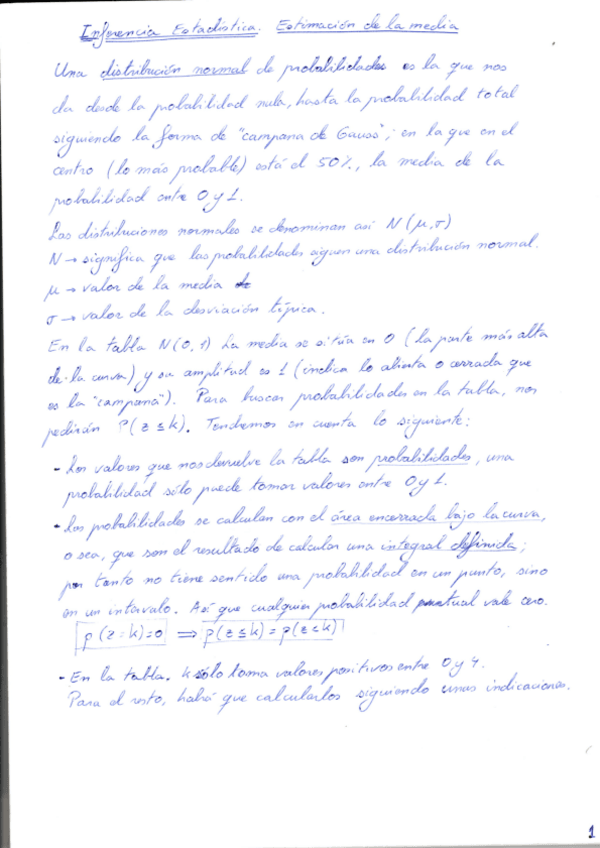 Inferencia Estadística. Estimación de la media
Una distribución normal de probabilidades es la que nos
da desde la probabilidad nula, hasta la probabilidad total
siguiendo la forma de "campana de Gauss"; en la que en el
centro (lo más probable) está el 50%, la media de la
probabilidad entre 0 y 1.
Las distribuciones normales se denominan así N(μ,σ)
N → significa que las probabilidades siguen una distribución normal.
μ → valor de la media
σ → valor de la desviación típica.
En la tabla N(0,1) La media se sitúa en 0 (la parte más alta
de la curva) y su amplitud es 1 (indica lo abierta o cerrada que
es la "campana"). Para buscar probabilidades en la tabla, nos
pedirán P(z ≤ k). Tendremos en cuenta lo siguiente:
- Los valores que nos devuelve la tabla son probabilidades, una
probabilidad sólo puede tomar valores entre 0 y 1.
- Las probabilidades se calculan con el área encerrada bajo la curva,
o sea, que son el resultado de calcular una integral definida;
por tanto no tiene sentido una probabilidad en un punto, sino
en un intervalo. Así que cualquier probabilidad puntual vale cero.
p(z=k)=0 ⟹ p(z≤k)=p(z<k)
- En la tabla. k sólo toma valores positivos entre 0 y 4.
Para el resto, habrá que calcularlos siguiendo unas indicaciones.
1